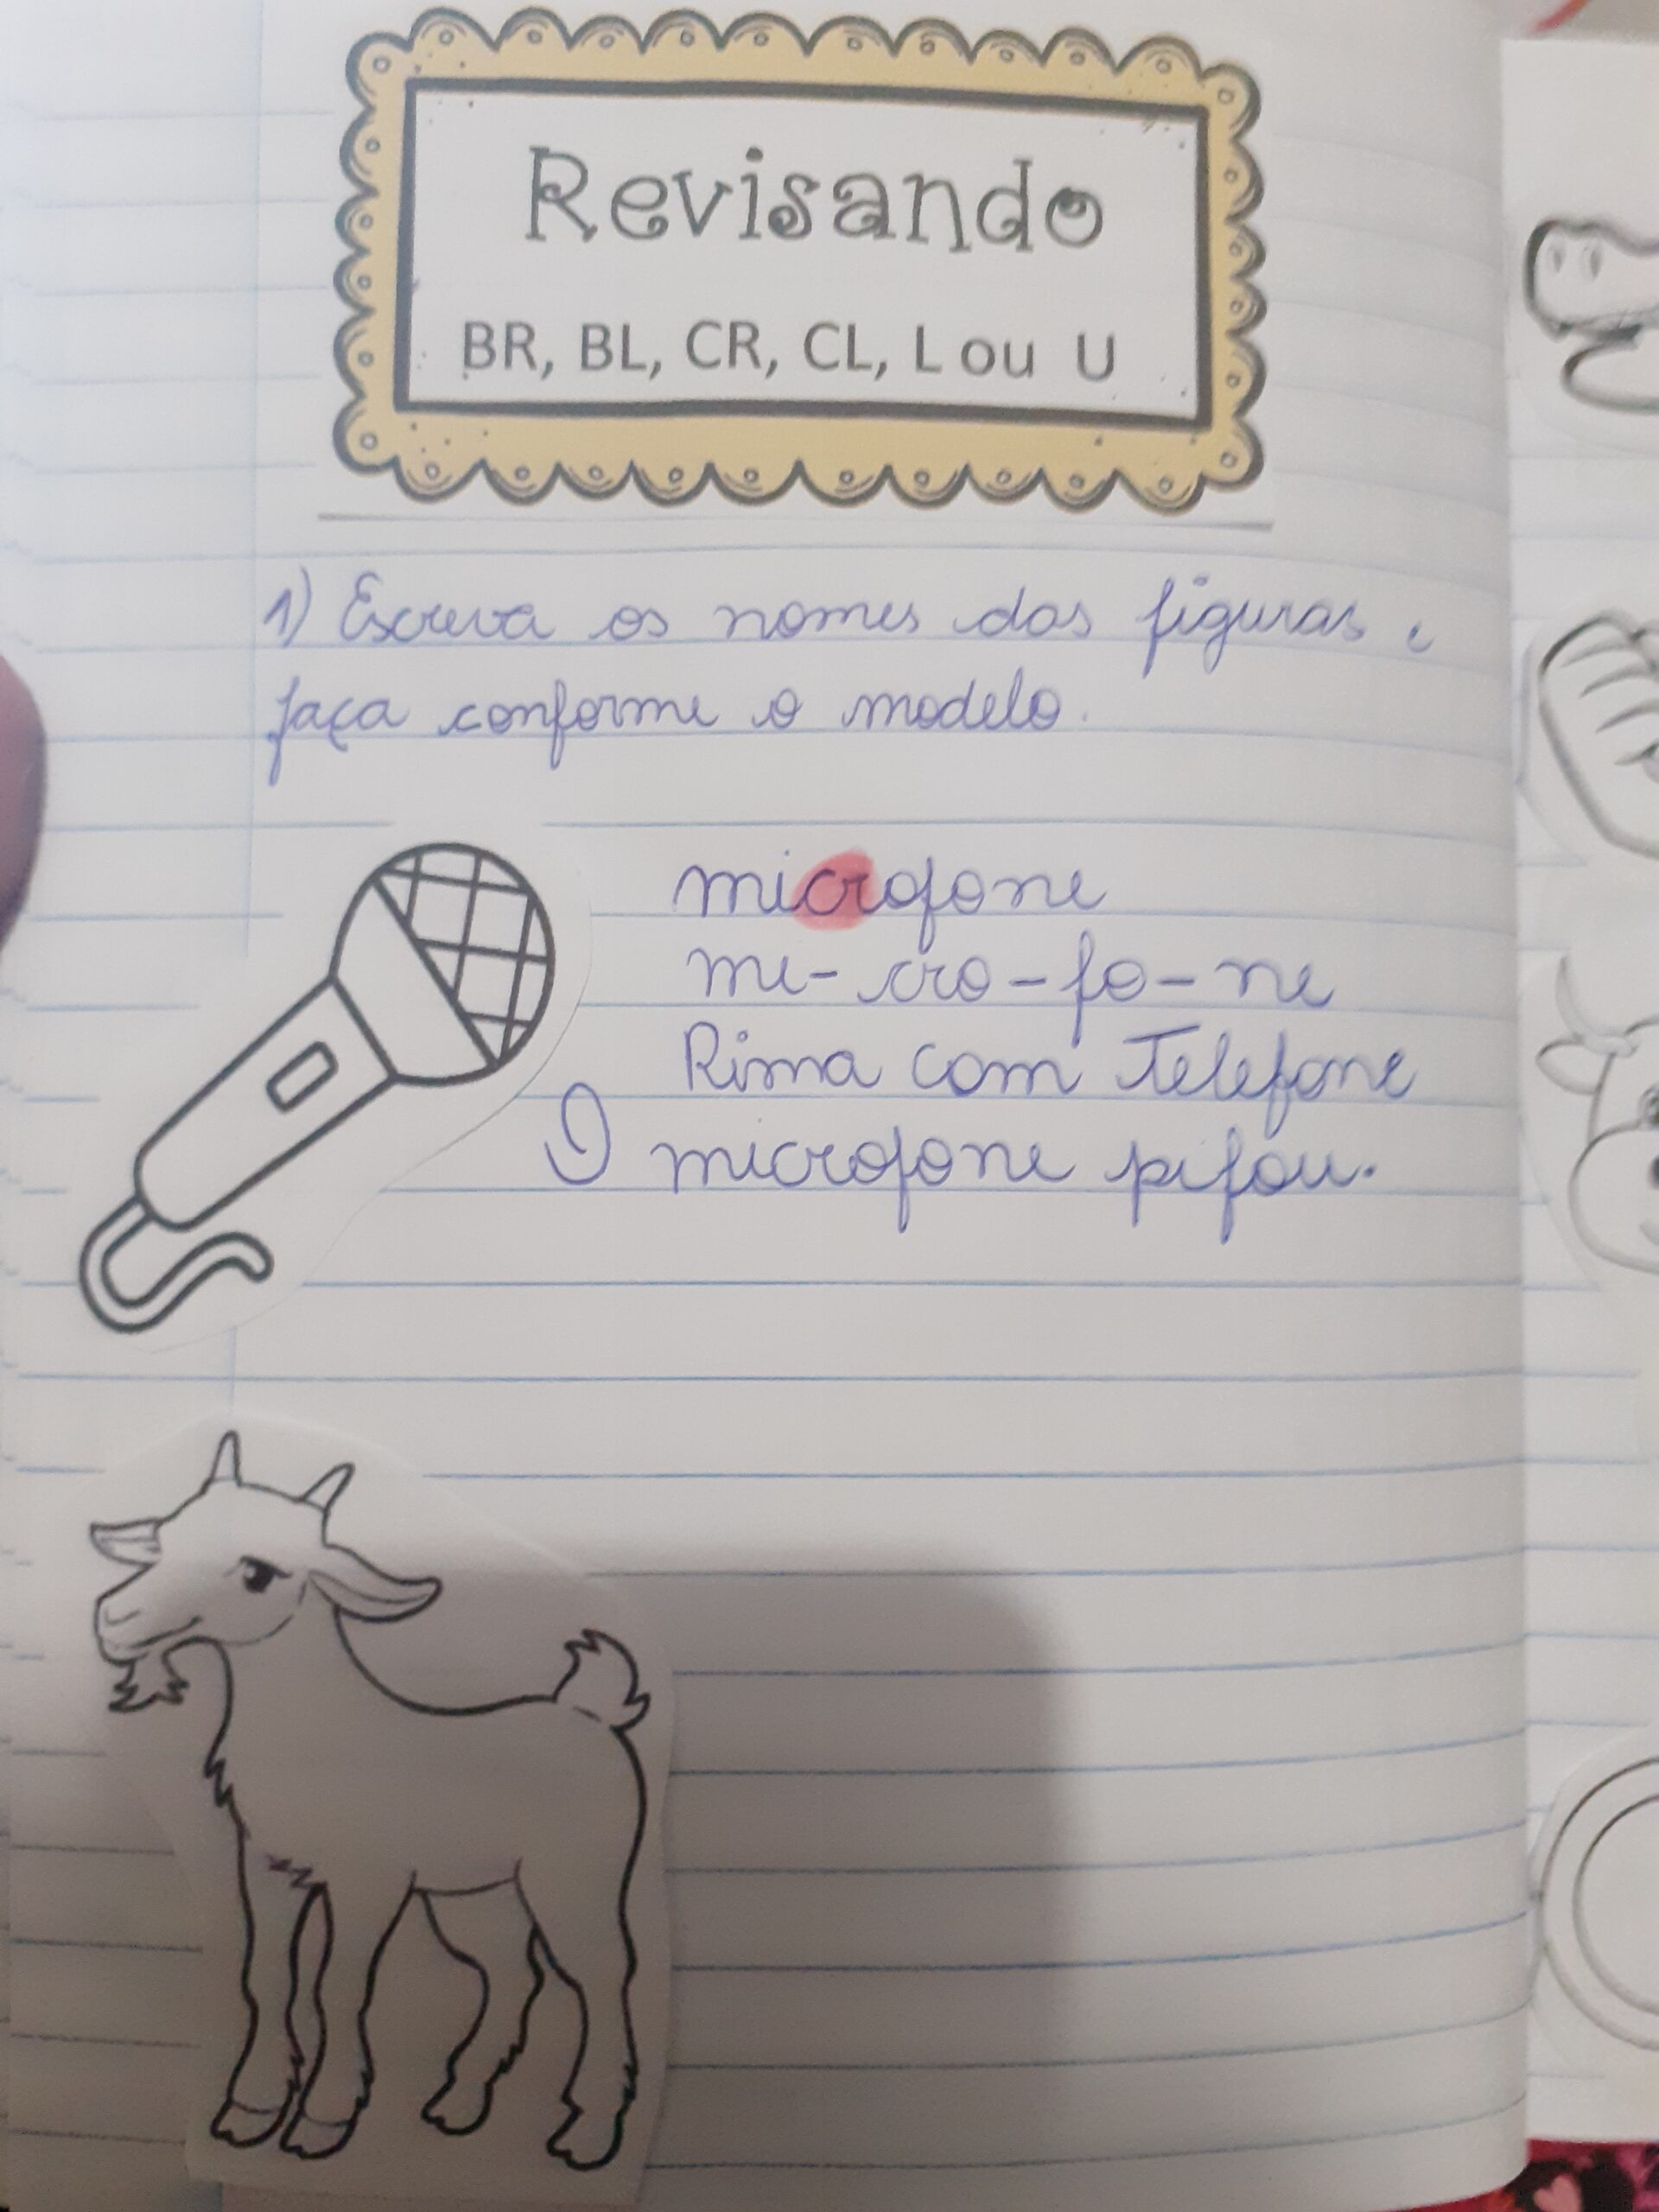 Revisando
BR, BL, CR, CL, L ou U
1) Escreva os nomes das figuras e
faça conforme o modelo.
microfone
mi-cro-fo-ne
Rima com Telefone
O microfone pifou.